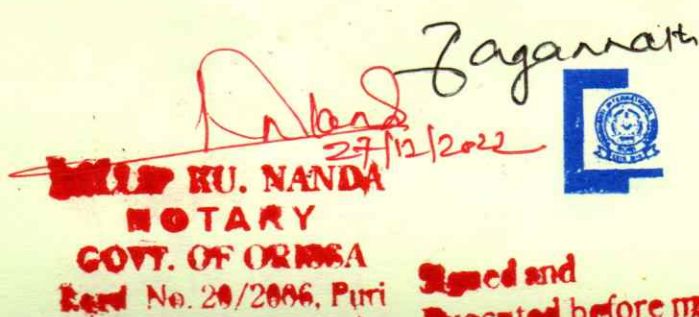 Jagannath
Nanda
27/12/2022
KU. NANDA
NOTARY
GOVT. OF ORISSA
Regd No. 20/2006, Puri
Signed and
before m